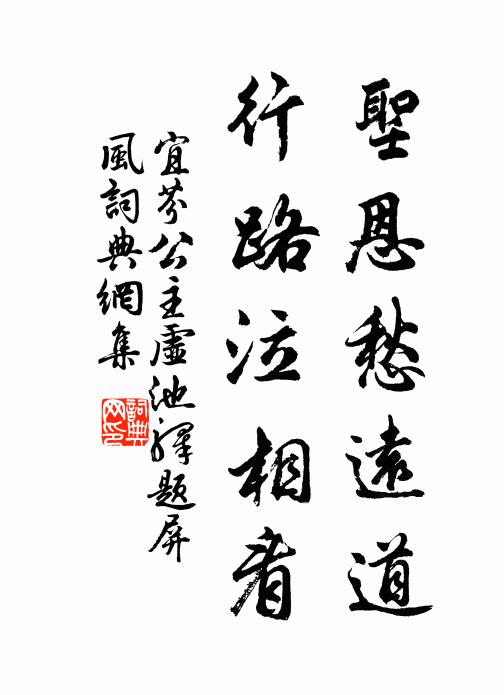 聖恩愁遠道
行路泣相看
宜芬公主虛池驛題屏
風詞典網集
詞典
网印